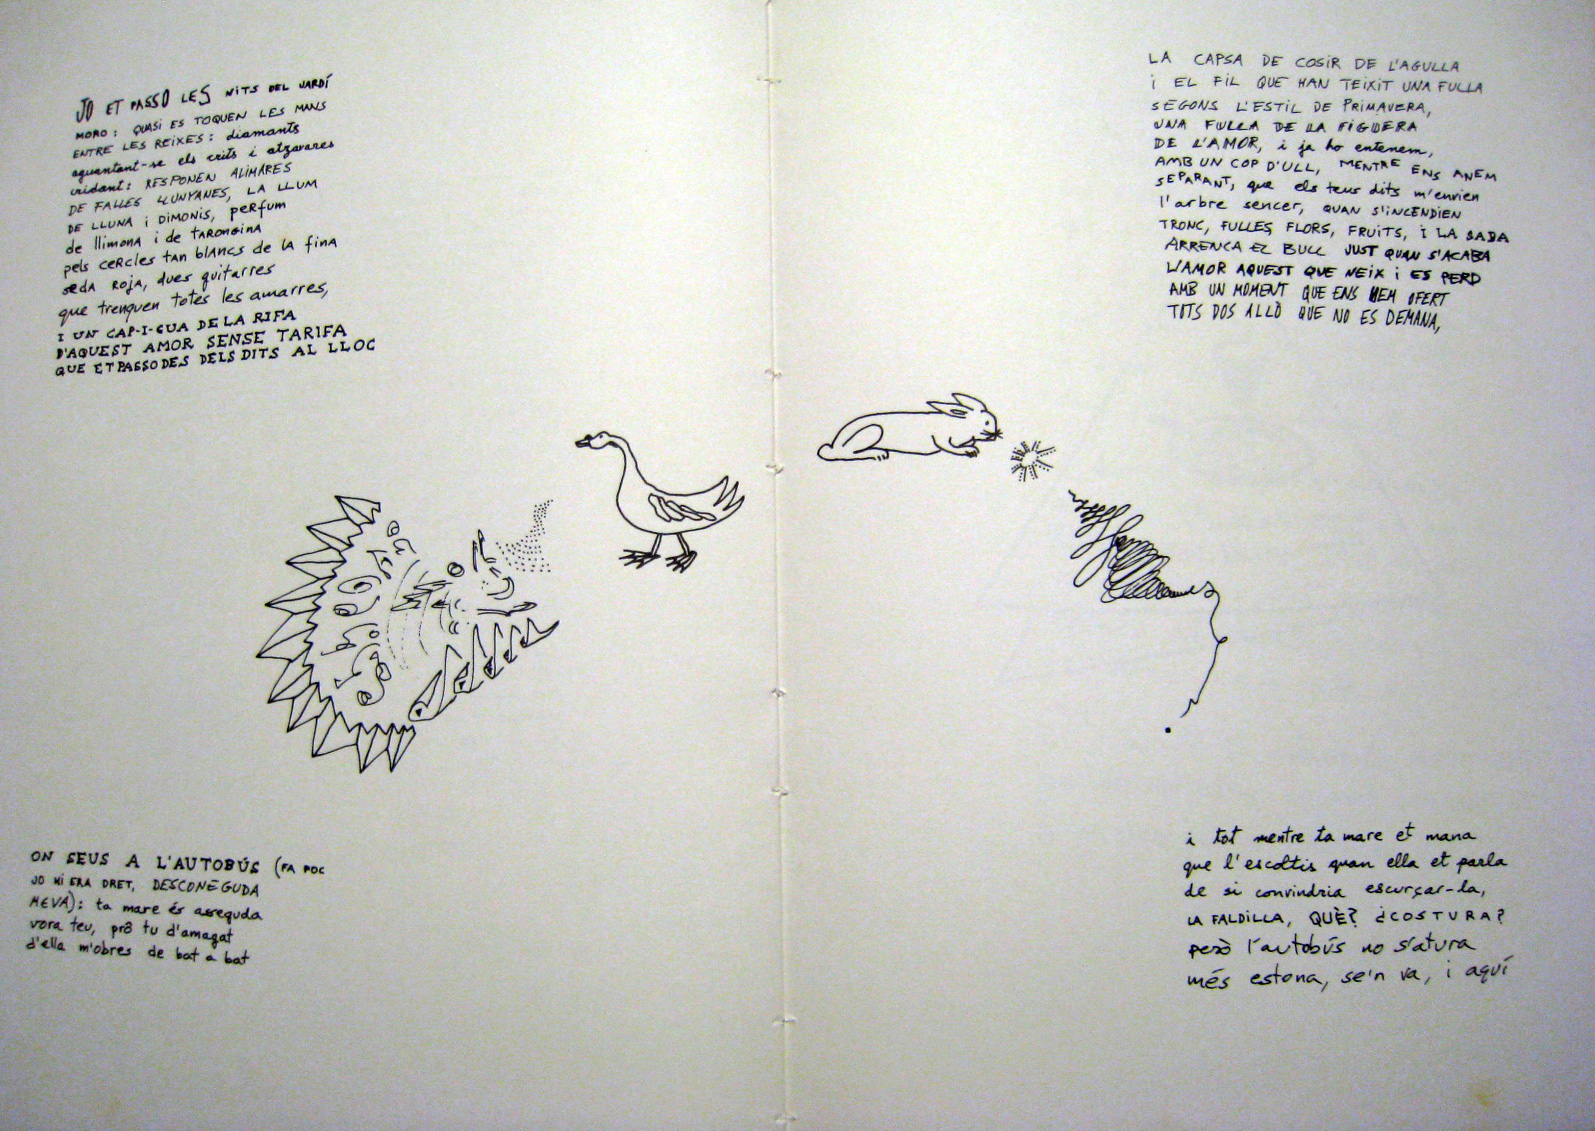 JO ET PASSO LES NITS DEL JARDÍ
MORO: QUASI ES TOQUEN LES MANS
ENTRE LES REIXES: diamants
aguantant-se els crits i atzavares
cridant: RESPONEN ALIMARES
DE FALLES LLUNYANES, LA LLUM
DE LLUNA i DIMONIS, perfum
de llimona i de TARONGINA
pels ceRcles tan blancs de la fina
seda roja, dues guitarres
que trenquen totes les amarres,
I UN CAP-I-CUA DE LA RIFA
D'AQUEST AMOR SENSE TARIFA
QUE ET PASSO DES DELS DITS AL LLOC
ON SEUS A L'AUTOBÚS (FA POC
JO HI ERA DRET, DESCONEGUDA
MEVA): ta mare és asseguda
vora teu, prô tu d'amagat
d'ella m'obres de bat a bat
LA CAPSA DE COSIR DE L'AGULLA
i EL FIL QUE HAN TEIXIT UNA FULLA
SEGONS L'ESTIL DE PRIMAVERA,
UNA FULLA DE LA FIGUERA
DE L'AMOR, i ja ho entenem,
AMB UN COP D'ULL, MENTRE ENS ANEM
SEPARANT, que els teus dits m'envien
l'arbre sencer, QUAN S'INCENDIEN
TRONC, FULLES FLORS, FRUITS, i LA SABA
ARRENCA EL BULL JUST QUAN S'ACABA
L'AMOR AQUEST QUE NEIX i ES PERD
AMB UN MOMENT QUE ENS HEM OFERT
TOTS DOS ALLÒ QUE NO ES DEMANA,
i tot mentre ta mare et mana
que l'escoltis quan ella et parla
de si convindria escurçar-la,
LA FALDILLA, QUÈ? ¿COSTURA?
però l'autobús no s'atura
més estona, se'n va, i aquí